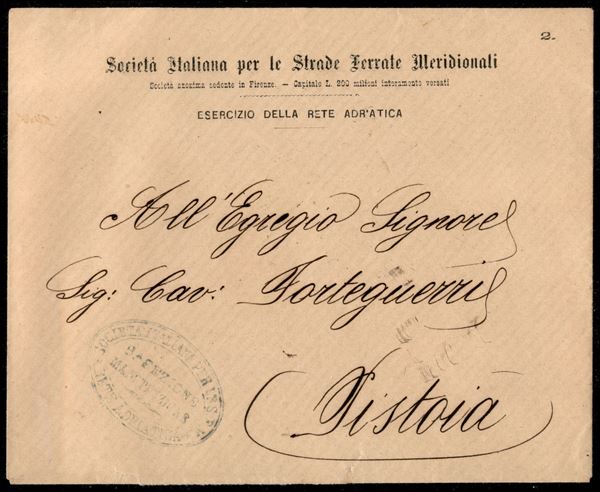 2.
Società Italiana per le Strade Ferrate Meridionali
Società anonima sedente in Firenze. — Capitale L. 200 milioni interamente versati
ESERCIZIO DELLA RETE ADRIATICA
All'Egregio Signore
Sig: Cav: Forteguerri
Pistoia
SOCIETÀ ITALIANA PER